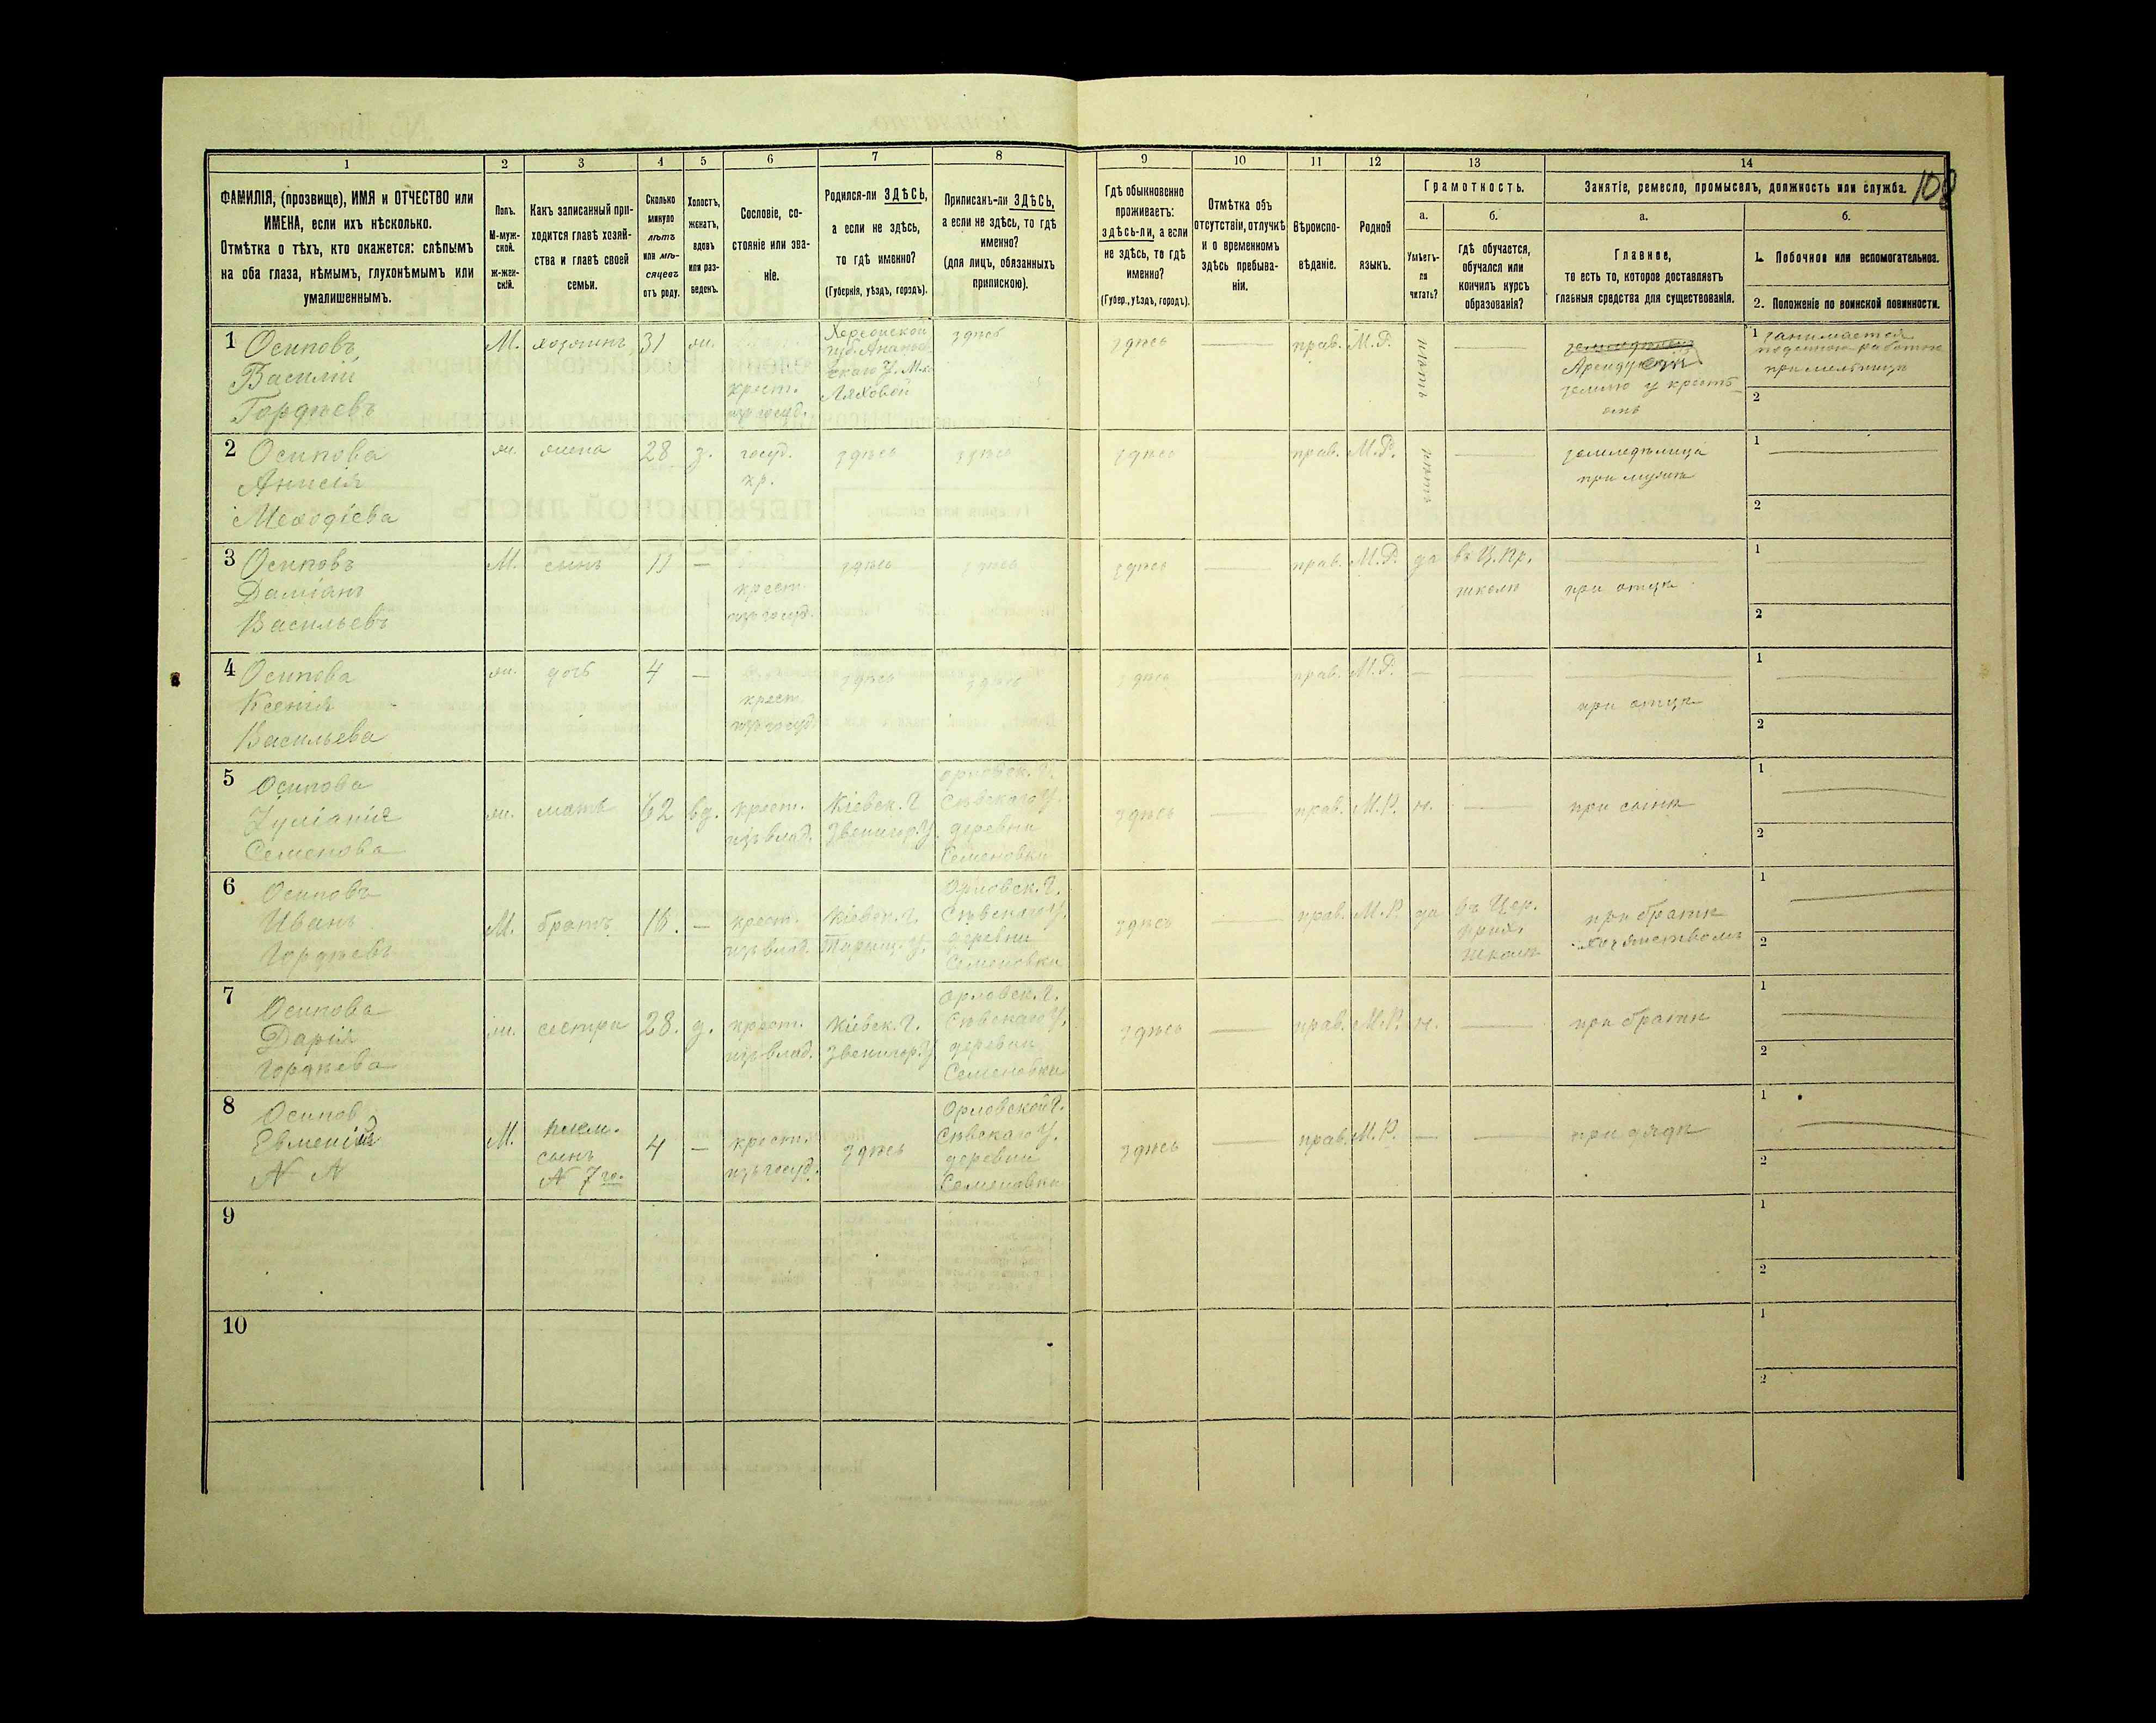 108
1
2
3
4
5
6
7
8
9
10
11
12
13
14
ФАМИЛІЯ, (прозвище), ИМЯ и ОТЧЕСТВО или
ИМЕНА, если ихъ нѣсколько.
Отмѣтка о тѣхъ, кто окажется: слѣпымъ
на оба глаза, нѣмымъ, глухонѣмымъ или
умалишеннымъ.
Полъ.
М-муж-
ской.
ж-жен-
скій.
Какъ записанный при-
ходится главѣ хозяй-
ства и главѣ своей
семьи.
Сколько
минуло
лѣтъ
или мѣ-
сяцевъ
отъ роду.
Холостъ,
женатъ,
вдовъ
или раз-
веденъ.
Сословіе, со-
стояніе или зва-
ніе.
Родился-ли ЗДѢСЬ,
а если не здѣсь,
то гдѣ именно?
(Губернія, уѣздъ, городъ).
Приписанъ-ли ЗДѢСЬ,
а если не здѣсь, то гдѣ
именно?
(для лицъ, обязанныхъ
припискою).
Гдѣ обыкновенно
проживаетъ:
здѣсь-ли, а если
не здѣсь, то гдѣ
именно?
(Губер., уѣздъ, городъ).
Отмѣтка объ
отсутствіи, отлучкѣ
и о временномъ
здѣсь пребыва-
ніи.
Вѣроиспо-
вѣданіе.
Родной
языкъ.
Грамотность.
а.
Умѣетъ-
ли
читать?
б.
гдѣ обучается,
обучался или
кончилъ курсъ
образованія?
Занятіе, ремесло, промыселъ, должность или служба.
а.
Главное,
то есть то, которое доставляетъ
главныя средства для существованія.
б.
1. Побочное или вспомогательное.
2. Положеніе по воинской повинности.
1 Осиповъ
Василій
Гордѣевъ
М.
хозяинъ
31
ж.
крест.
изъ госуд.
Херсонской
губ. Ананьев
скаго У. М.
Ляховой
здѣсь
здѣсь
прав.
М.Р.
нѣтъ
Арендуетъ
землю у крестъ
янъ
1 занимается
поденною работою
при мельницѣ
2
2 Осипова
Анисія
Меѳодіева
ж.
жена
28
з.
госуд.
кр.
здѣсь
здѣсь
здѣсь
прав.
М.Р.
нѣтъ
земледѣлица
при мужѣ
1
2
3 Осиповъ
Даміанъ
Васильевъ
М.
сынъ
11
крест.
изъ госуд.
здѣсь
здѣсь
здѣсь
прав.
М.Р.
да
въ Ц. Пр.
школѣ
при отцѣ
1
2
4 Осипова
Ксенія
Васильева
ж.
дочь
4
крест.
изъ госуд.
здѣсь
здѣсь
здѣсь
прав.
М.Р.
при отцѣ
1
2
5 Осипова
Іуліанія
Семенова
ж.
мать
62
вд.
крест.
изъ влад.
Кіевск. Г.
Звенигор. У.
Орловск. Г.
Сѣвскаго У.
деревни
Семеновки
здѣсь
прав.
М.Р.
н.
при сынѣ
1
2
6 Осиповъ
Иванъ
Гордѣевъ
М.
братъ
16.
крест.
изъ влад.
Кіевск. Г.
Таращ. У.
Орловск. Г.
Сѣвскаго У.
деревни
Семеновки
здѣсь
прав.
М.Р.
да
въ Цер.
прих.
школѣ
при братѣ
хозяйствомъ
1
2
7 Осипова
Дарія
Гордѣева
ж.
сестра
28.
д.
крест.
изъ влад.
Кіевск. Г.
Звенигор. У.
Орловск. Г.
Сѣвскаго У.
деревни
Семеновки
здѣсь
прав.
М.Р.
н.
при братѣ
1
2
8 Осипов
Евменій
N N
М.
сынъ
N 7го.
4
крест.
изъ госуд.
здѣсь
Орловской Г.
Сѣвскаго У.
деревни
Семеновки
здѣсь
прав.
М.Р.
при дядѣ
1
2
9
1
2
10
1
2